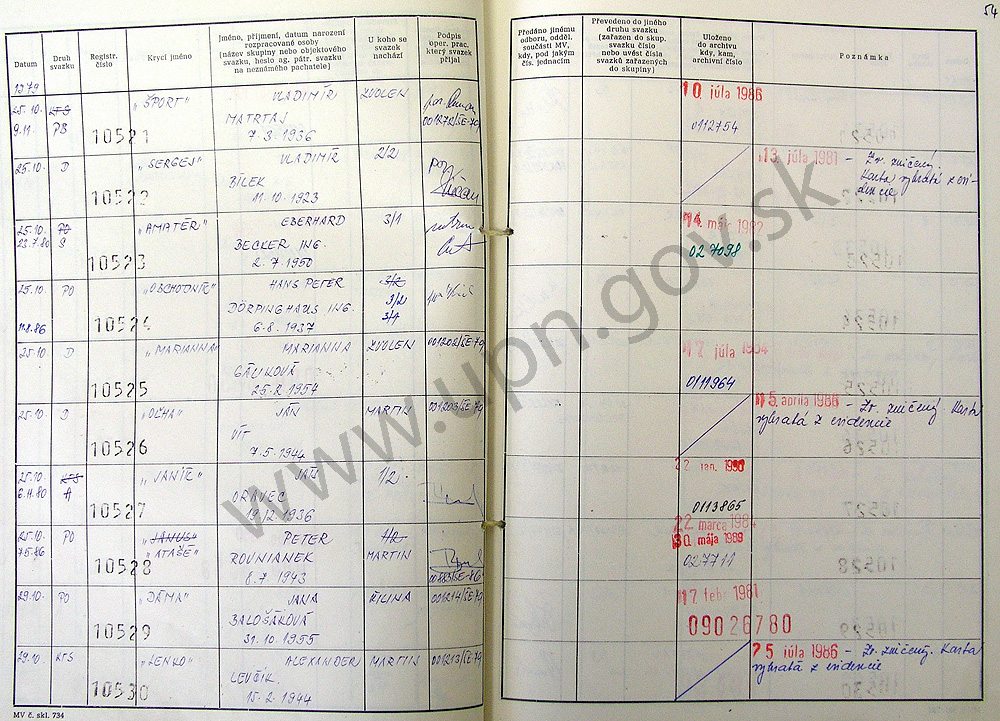 54
Datum
Druh svazku
Registr. číslo
Krycí jméno
Jméno, příjmení, datum narození rozpracované osoby
(název skupiny nebo objektového svazku, heslo ag. pátr. svazku na neznámého pachatele)
U koho se svazek nachází
Podpis oper. prac. který svazek přijal
Předáno jinému odboru, odděl. součásti MV, kdy, pod jakým čís. jednacím
Převedeno do jiného druhu svazku (zařazen do skup. svazku číslo nebo uvést čísla svazků zařazených do skupiny)
Uloženo do archivu kdy, kam, archivní číslo
Poznámka
1979
25.10. KTS 10521 „ŠPORT" VLADIMÍR ZVOLEN 10 júla 1986
9.11. PB MATRTAJ 001272/ŠE-79 0112754
7.3.1936
25.10. D 10522 „SERGEJ" VLADIMÍR 2/2 13. júla 1981 - Zv. zničený.
BÍLEK Karta vybratá z evidencie
11.10.1923
25.10. PO 10523 „AMATÉR" EBERHARD 3/1 14 mája 1982
23.7.80 S BECKER ING. 027098
2.7.1950
25.10. PO 10524 „OBCHODNÍK" HANS PETER 3/2
DÖRPINGHAUS ING. 3/2
11.8.86 6.8.1937 3/1
25.10 D 10525 „MARIANNA" MARIANNA ZVOLEN 001202/ŠE-79 17 júla 1984
GÁLIKOVÁ 0111964
25.2.1954
25.10. D 10526 „OĽHA" JÁN MARTIN 001203/ŠE-79 15. apríla 1986 - Zv. zničený. Karta
VÍT vybratá z evidencie
7.5.1944
25.10. KTS 10527 „JANÍK" JÁN 1/2. 22 jan. 1990
6.11.80 A ORAVEC 0113865
19.12.1936
25.10. PO 10528 „JANUS" PETER 22 marca 1984
7.5.86 „ATAŠÉ" ROVNIANEK MARTIN 30 mája 1989
8.7.1943 027711
29.10. PO 10529 „DÁMA" JANA ŽILINA 001214/ŠE-79 17 febr 1981
BALOŠÁKOVÁ 09026780
31.10.1955
29.10. KTS 10530 „LENKO" ALEXANDER MARTIN 001213/ŠE-79 25 júla 1986 - Zv. zničený. Karta
LEVČÍK vybratá z evidencie
15.2.1944
MV č. skl. 734
www.upn.gov.sk